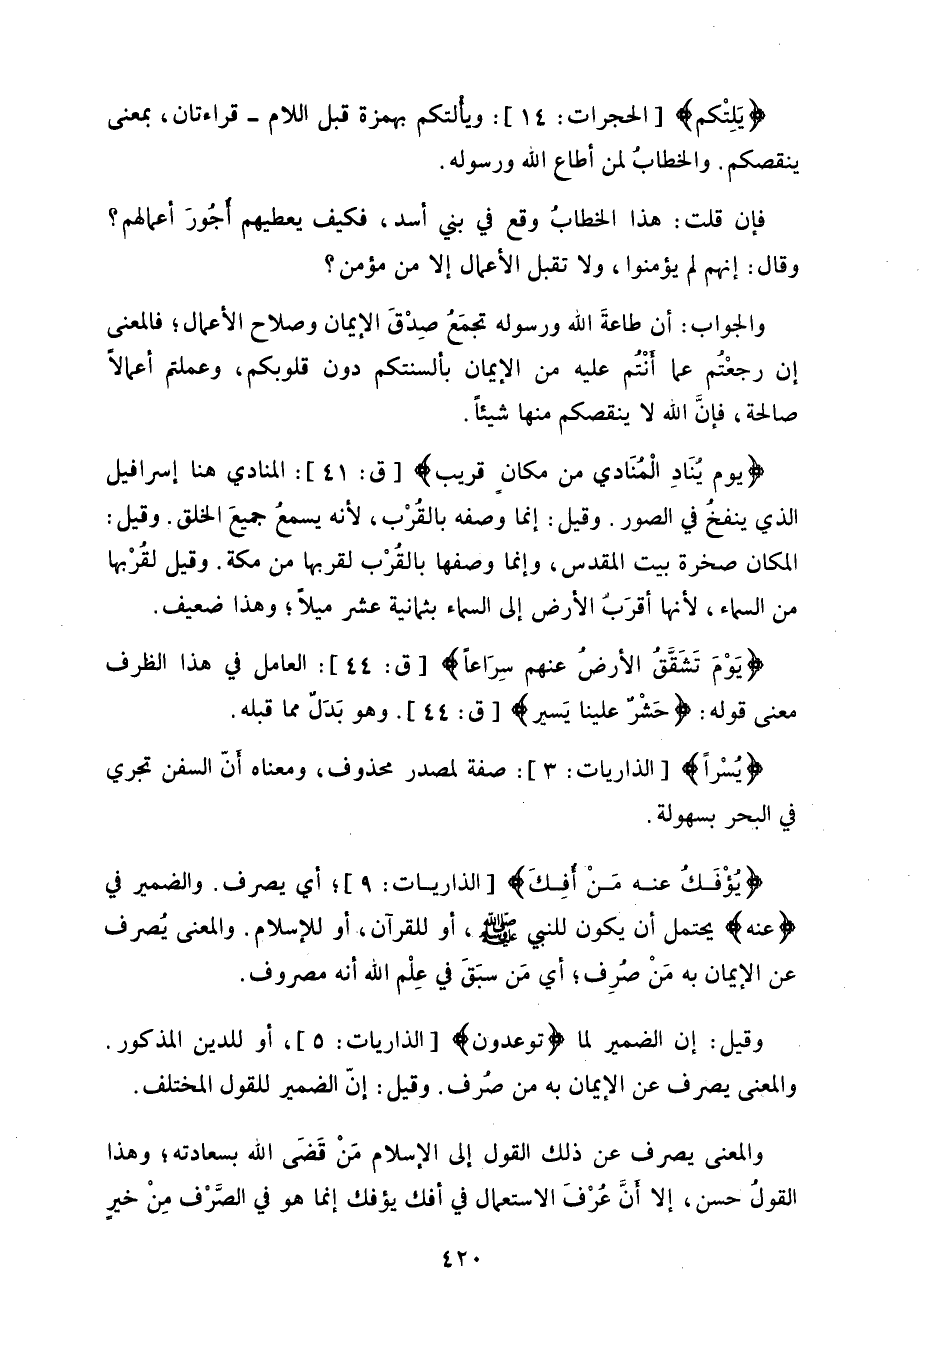 ﴿يَلِتْكم﴾ [الحجرات: ١٤]: ويألتكم بهمزة قبل اللام - قراءتان، بمعنى
ينقصكم. والخطابُ لمن أطاع الله ورسوله.
فإن قلت: هذا الخطابُ وقع في بني أسد، فكيف يعطيهم أُجُورَ أعمالهم؟
وقال: إنهم لم يؤمنوا، ولا تقبل الأعمال إلا من مؤمن؟
والجواب: أن طاعةَ الله ورسوله تجمَعُ صِدْقَ الإيمان وصلاح الأعمال؛ فالمعنى
إن رجعْتُم عما أَنْتُم عليه من الإيمان بألسنتكم دون قلوبكم، وعملتم أعمالاً
صالحة، فإنَّ الله لا ينقصكم منها شيئاً.
﴿يوم يُنَادِ الْمُنَادي من مكانٍ قريب﴾ [ق: ٤١]: المنادي هنا إسرافيل
الذي ينفخُ في الصور. وقيل: إنما وصفه بالقُرْب، لأنه يسمعُ جميعَ الخلق. وقيل:
المكان صخرة بيت المقدس، وإنما وصفها بالقُرْب لقربها من مكة. وقيل لقُرْبها
من السماء، لأنها أقرَبُ الأرض إلى السماء بثمانية عشر ميلاً؛ وهذا ضعيف.
﴿يَوْمَ تَشَقَّقُ الأرضُ عنهم سِرَاعاً﴾ [ق: ٤٤]: العامل في هذا الظرف
معنى قوله: ﴿حَشْرٌ علينا يَسير﴾ [ق: ٤٤]. وهو بَدَلٌ مما قبله.
﴿يُسْراً﴾ [الذاريات: ٣]: صفة لمصدر محذوف، ومعناه أنّ السفن تجري
في البحر بسهولة.
﴿يُؤْفَكُ عنه مَنْ أُفِكَ﴾ [الذاريات: ٩]؛ أي يصرف. والضمير في
﴿عنه﴾ يحتمل أن يكون للنبي ﷺ، أو للقرآن، أو للإسلام. والمعنى يُصرف
عن الإيمان به مَنْ صُرِف؛ أي مَن سبَقَ في عِلْم الله أنه مصروف.
وقيل: إن الضمير لما ﴿توعدون﴾ [الذاريات: ٥]، أو للدين المذكور.
والمعنى يصرف عن الإيمان به من صُرف. وقيل: إنّ الضمير للقول المختلف.
والمعنى يصرف عن ذلك القول إلى الإسلام مَنْ قَضَى الله بسعادته؛ وهذا
القولُ حسن، إلا أَنَّ عُرْفَ الاستعمال في أفك يؤفك إنما هو في الصَّرْف مِنْ خيرٍ
٤٢٠